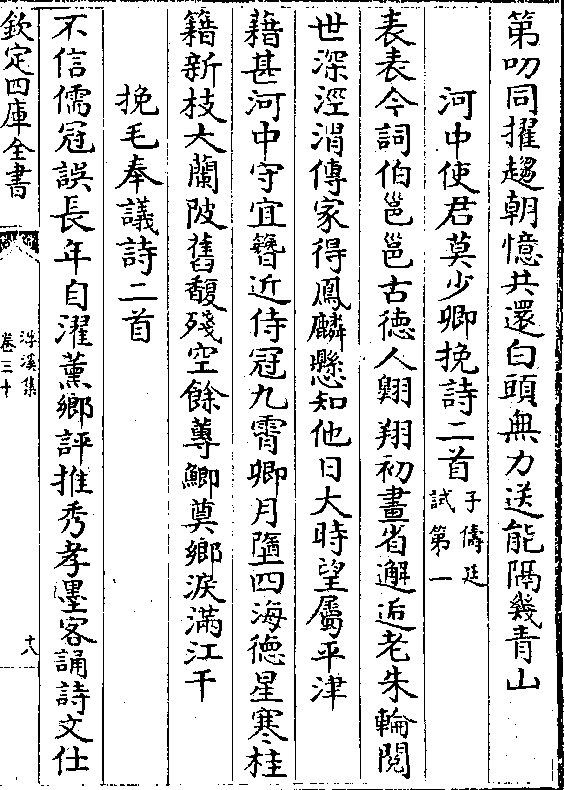 第叨同擢趨朝憶共還白頭無力送能隔幾青山
河中使君莫少卿挽詩二首子儔廷試第一
表表今詞伯邕邕古德人翺翔初畫省邂逅老朱輪閲
世深涇渭傳家得鳳麟懸知他日大時望屬平津
藉甚河中守宜簪近侍冠九霄卿月墮四海德星寒桂
籍新枝大蘭陂舊馥殘空餘蓴鯽奠鄉淚滿江干
挽毛奉議詩二首
不信儒冠誤長年自濯薰鄉評推秀孝墨客誦詩文仕
欽定四庫全書
浮溪集
卷三十
十八